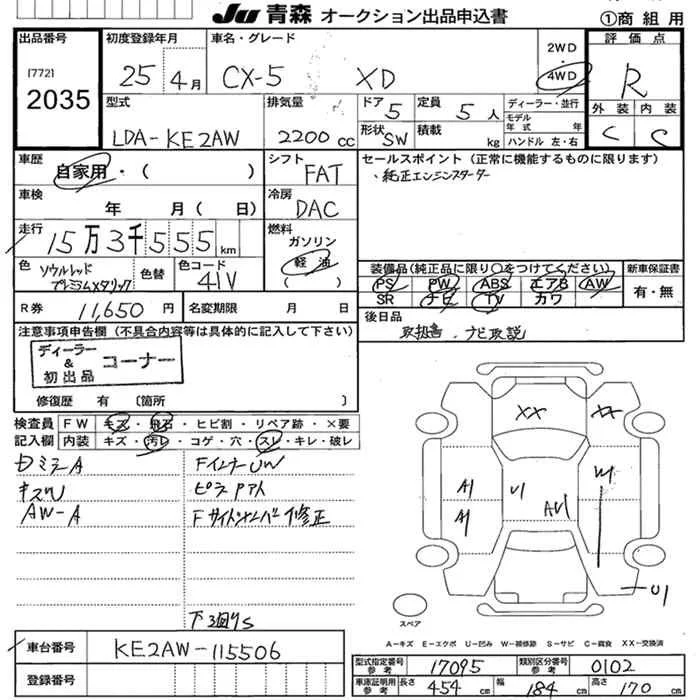 JU 青森 オークション出品申込書
①商組用
出品番号
[772]
2035
初度登録年月
25年4月
車名・グレード
CX-5 XD
2WD
4WD
評価点
R
外装 内装
C C
型式
LDA-KE2AW
排気量
2200cc
ドア 5
定員 5人
形状 SW
積載 kg
ディーラー・並行
モデル年式 年
ハンドル 左・右
車歴
自家用・( )
シフト
FAT
セールスポイント(正常に機能するものに限ります)
・純正エンジンスターター
車検
年 月( 日)
冷房
DAC
走行
15万3千555km
燃料
ガソリン
軽油
( )
色
ソウルレッド
プレミアムメタリック
色替
色コード
41V
装備品(純正品に限り○をつけてください)
PS PW ABS エアB AW
SR ナビ TV カワ
新車保証書
有・無
R券 11,650円
名変期限 月 日
後日品
取扱書・ナビ取説
注意事項申告欄(不具合内容等は具体的に記入して下さい)
ディーラー
&
初出品
コーナー
修復歴 有 〔箇所 〕
検査員 FW キズ・飛石・ヒビ割・リペア跡・×要
記入欄 内装 キズ・汚レ・コゲ・穴・スレ・キレ・破レ
AW-A
下廻りS
XX XX
A1 U1 W1
A1 AU1
U1
スペア
A=キズ E=エクボ U=凹み W=補修跡 S=サビ C=腐食 XX=交換済
車台番号
KE2AW-115506
登録番号
型式指定番号 参考 17095
類別区分番号 参考 0102
車庫証明用 参考 長さ 454cm 幅 184cm 高さ 170cm